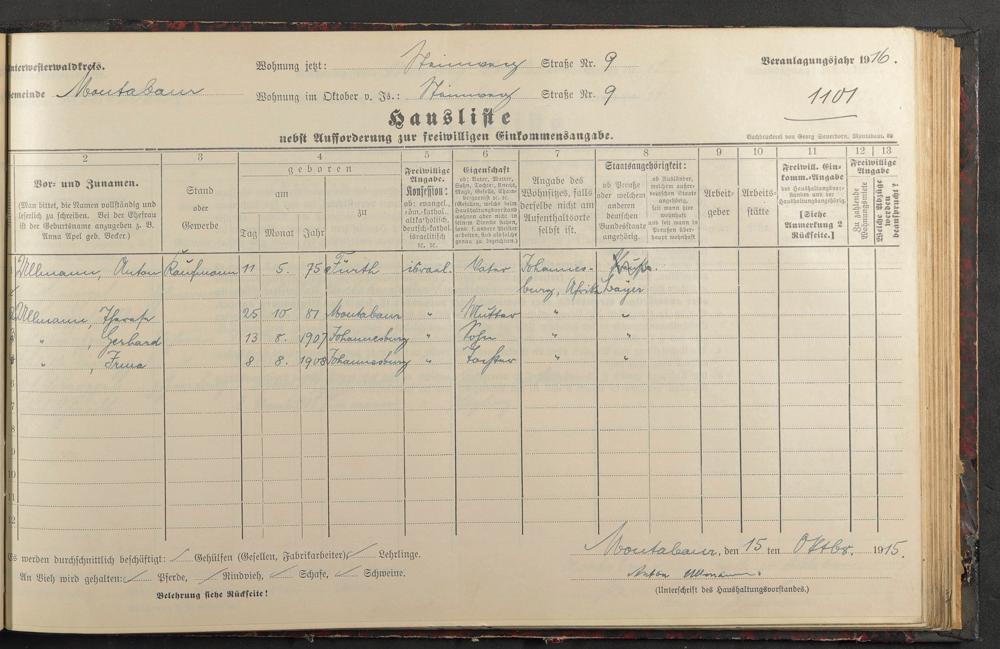 Unterwesterwaldkreis.
Wohnung jetzt: Steinweg Straße Nr. 9
Veranlagungsjahr 1916.
Gemeinde Montabaur
Wohnung im Oktober v. Js.: Steinweg Straße Nr. 9
1101
Hausliste
nebst Aufforderung zur freiwilligen Einkommensangabe.
Buchdruckerei von Georg Sauerborn, Montabaur.
2 3 4 5 6 7 8 9 10 11 12 13
Vor- und Zunamen.
(Man bittet, die Namen vollständig und
leserlich zu schreiben. Bei der Ehefrau
ist der Geburtsname anzugeben z. B.
Anna Apel geb. Becker.)
Stand
oder
Gewerbe
geboren
am
zu
Tag Monat Jahr
Freiwillige
Angabe.
Konfession:
ob: evangel.,
röm.-kathol.,
altkatholisch,
deutsch-kathol.
israelitisch
2c. 2c.
Eigenschaft
ob: Vater, Mutter,
Sohn, Tochter, Knecht,
Magd, Geselle,
Angabe des
Wohnsitzes, falls
derselbe nicht am
Aufenthaltsorte
selbst ist.
Staatsangehörigkeit:
ob Preuße
oder welchem
anderen
deutschen
Bundesstaate
angehörig.
ob Ausländer,
welchem außer-
deutschen Staate
angehörig,
seit wann hier
wohnhaft
und seit wann in
Preußen über-
haupt wohnhaft
Arbeit-
geber
Arbeits-
stätte
Freiwill. Ein-
komm.-Angabe
des Haushaltungsvor-
standes und der
Haushaltungsangehörig.
[Siehe
Anmerkung 2
Rückseite.]
Freiwillige
Angabe
Zu zahlende
Wohnungsmiete
Welche Abzüge
werden
beansprucht?
1 Ullmann, Anton Kaufmann 11 5. 75 Fürth israel. Vater Johannes-
burg, Afrika Bayer
2 Ullmann, Therese 25 10 81 Montabaur " Mutter " "
3 " , Gerhard 13 8. 1907 Johannesburg " Sohn " "
4 " , Irma 8 8. 1908 Johannesburg " Tochter " "
6
7
8
9
10
11
12
Es werden durchschnittlich beschäftigt: / Gehülfen (Gesellen, Fabrikarbeiter) / Lehrlinge.
Montabaur, den 15 ten Oktbr. 1915.
An Vieh wird gehalten: / Pferde, / Rindvieh, / Schafe, / Schweine.
Anton Ullmann
Belehrung siehe Rückseite!
(Unterschrift des Haushaltungsvorstandes.)